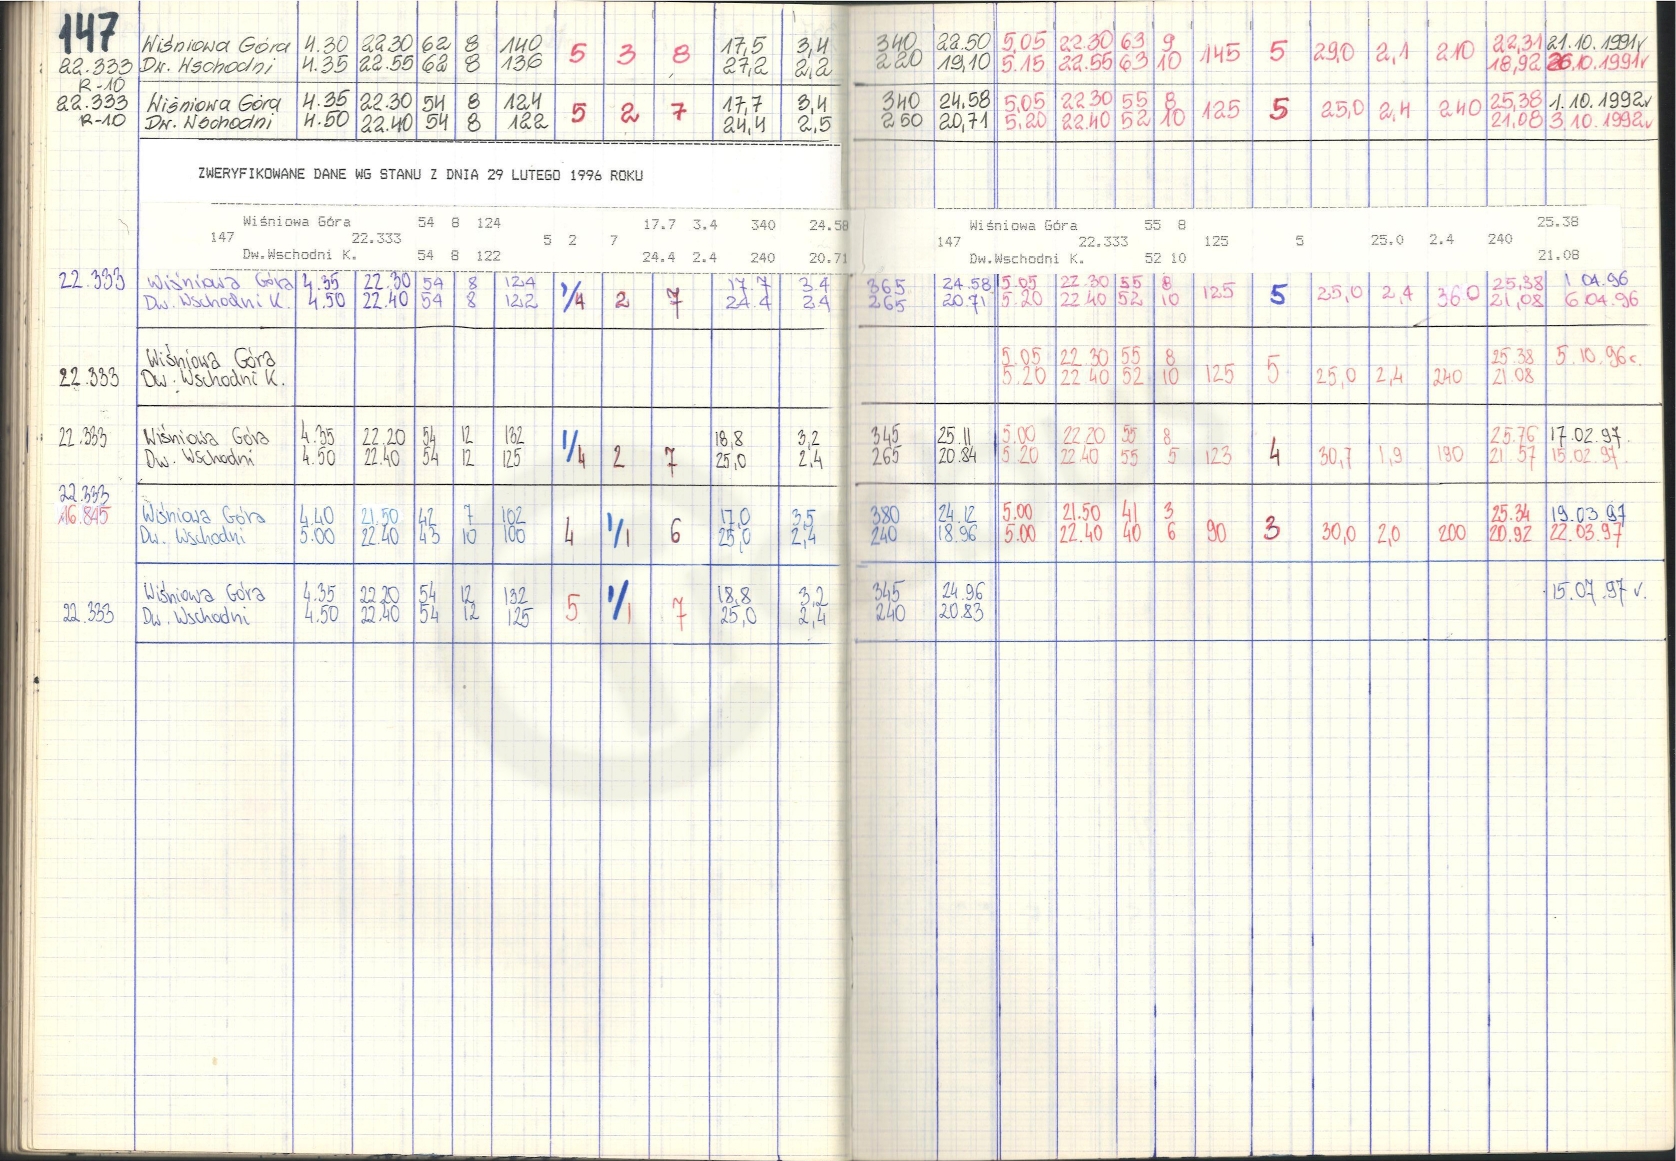 147 Wiśniowa Góra 4.30 22.30 62 8 140 5 3 8 17,5 3,4 340 22.50 5,05 22.30 63 9 145 5 29,0 2,1 210 22,31 21.10.1991r
22.333 Dw. Wschodni 4.35 22.55 62 8 136 27,2 2,2 220 19,10 5.15 22.55 63 10 18,92 26.10.1991r
R-10
22.333 Wiśniowa Góra 4.35 22.30 54 8 124 5 2 7 17,7 3,4 340 24,58 5,05 22.30 55 8 125 5 25,0 2,4 240 25,38 1.10.1992r
R-10 Dw. Wschodni 4.50 22.40 54 8 122 24,4 2,5 250 20,71 5,20 22.40 52 10 21,08 3.10.1992r
ZWERYFIKOWANE DANE WG STANU Z DNIA 29 LUTEGO 1996 ROKU
Wiśniowa Góra 54 8 124 17.7 3.4 340 24.58 Wiśniowa Góra 55 8 25.38
147 22.333 5 2 7 147 22.333 125 5 25.0 2.4 240
Dw.Wschodni K. 54 8 122 24.4 2.4 240 20.71 Dw.Wschodni K. 52 10 21.08
22.333 Wiśniowa Góra 4.35 22.30 54 8 124 1/4 2 7 17.7 3.4 365 24.58 5.05 22.30 55 8 125 5 25,0 2,4 360 25,38 1 04.96
Dw. Wschodni K. 4.50 22.40 54 8 122 24.4 2.4 265 20.71 5.20 22.40 52 10 21,08 6.04.96
Wiśniowa Góra 5.05 22.30 55 8 25.38 5.10.96r.
22.333 Dw. Wschodni K. 5.20 22 40 52 10 125 5 25,0 2,4 240 21.08
22.333 Wiśniowa Góra 4.35 22.20 54 12 132 1/4 2 7 18,8 3,2 345 25.11 5.00 22 20 55 8 25.76 17.02.97.
Dw. Wschodni 4.50 22.40 54 12 125 25,0 2,4 265 20.84 5 20 22 40 55 5 123 4 30,7 1,9 190 21 57 15.02.97.
22.333
16.845 Wiśniowa Góra 4.40 21.50 42 7 102 4 1/1 6 17,0 3,5 380 24.12 5.00 21.50 41 3 90 3 30,0 2,0 200 25.34 19.03.97
Dw. Wschodni 5.00 22.40 43 10 100 25,0 2,4 240 18.96 5.00 22.40 40 6 20.92 22.03.97
Wiśniowa Góra 4.35 22.20 54 12 132 5 1/1 7 18.8 3,2 345 24.96 15.07.97 r.
22.333 Dw. Wschodni 4.50 22.40 54 12 125 25,0 2,4 240 20.83